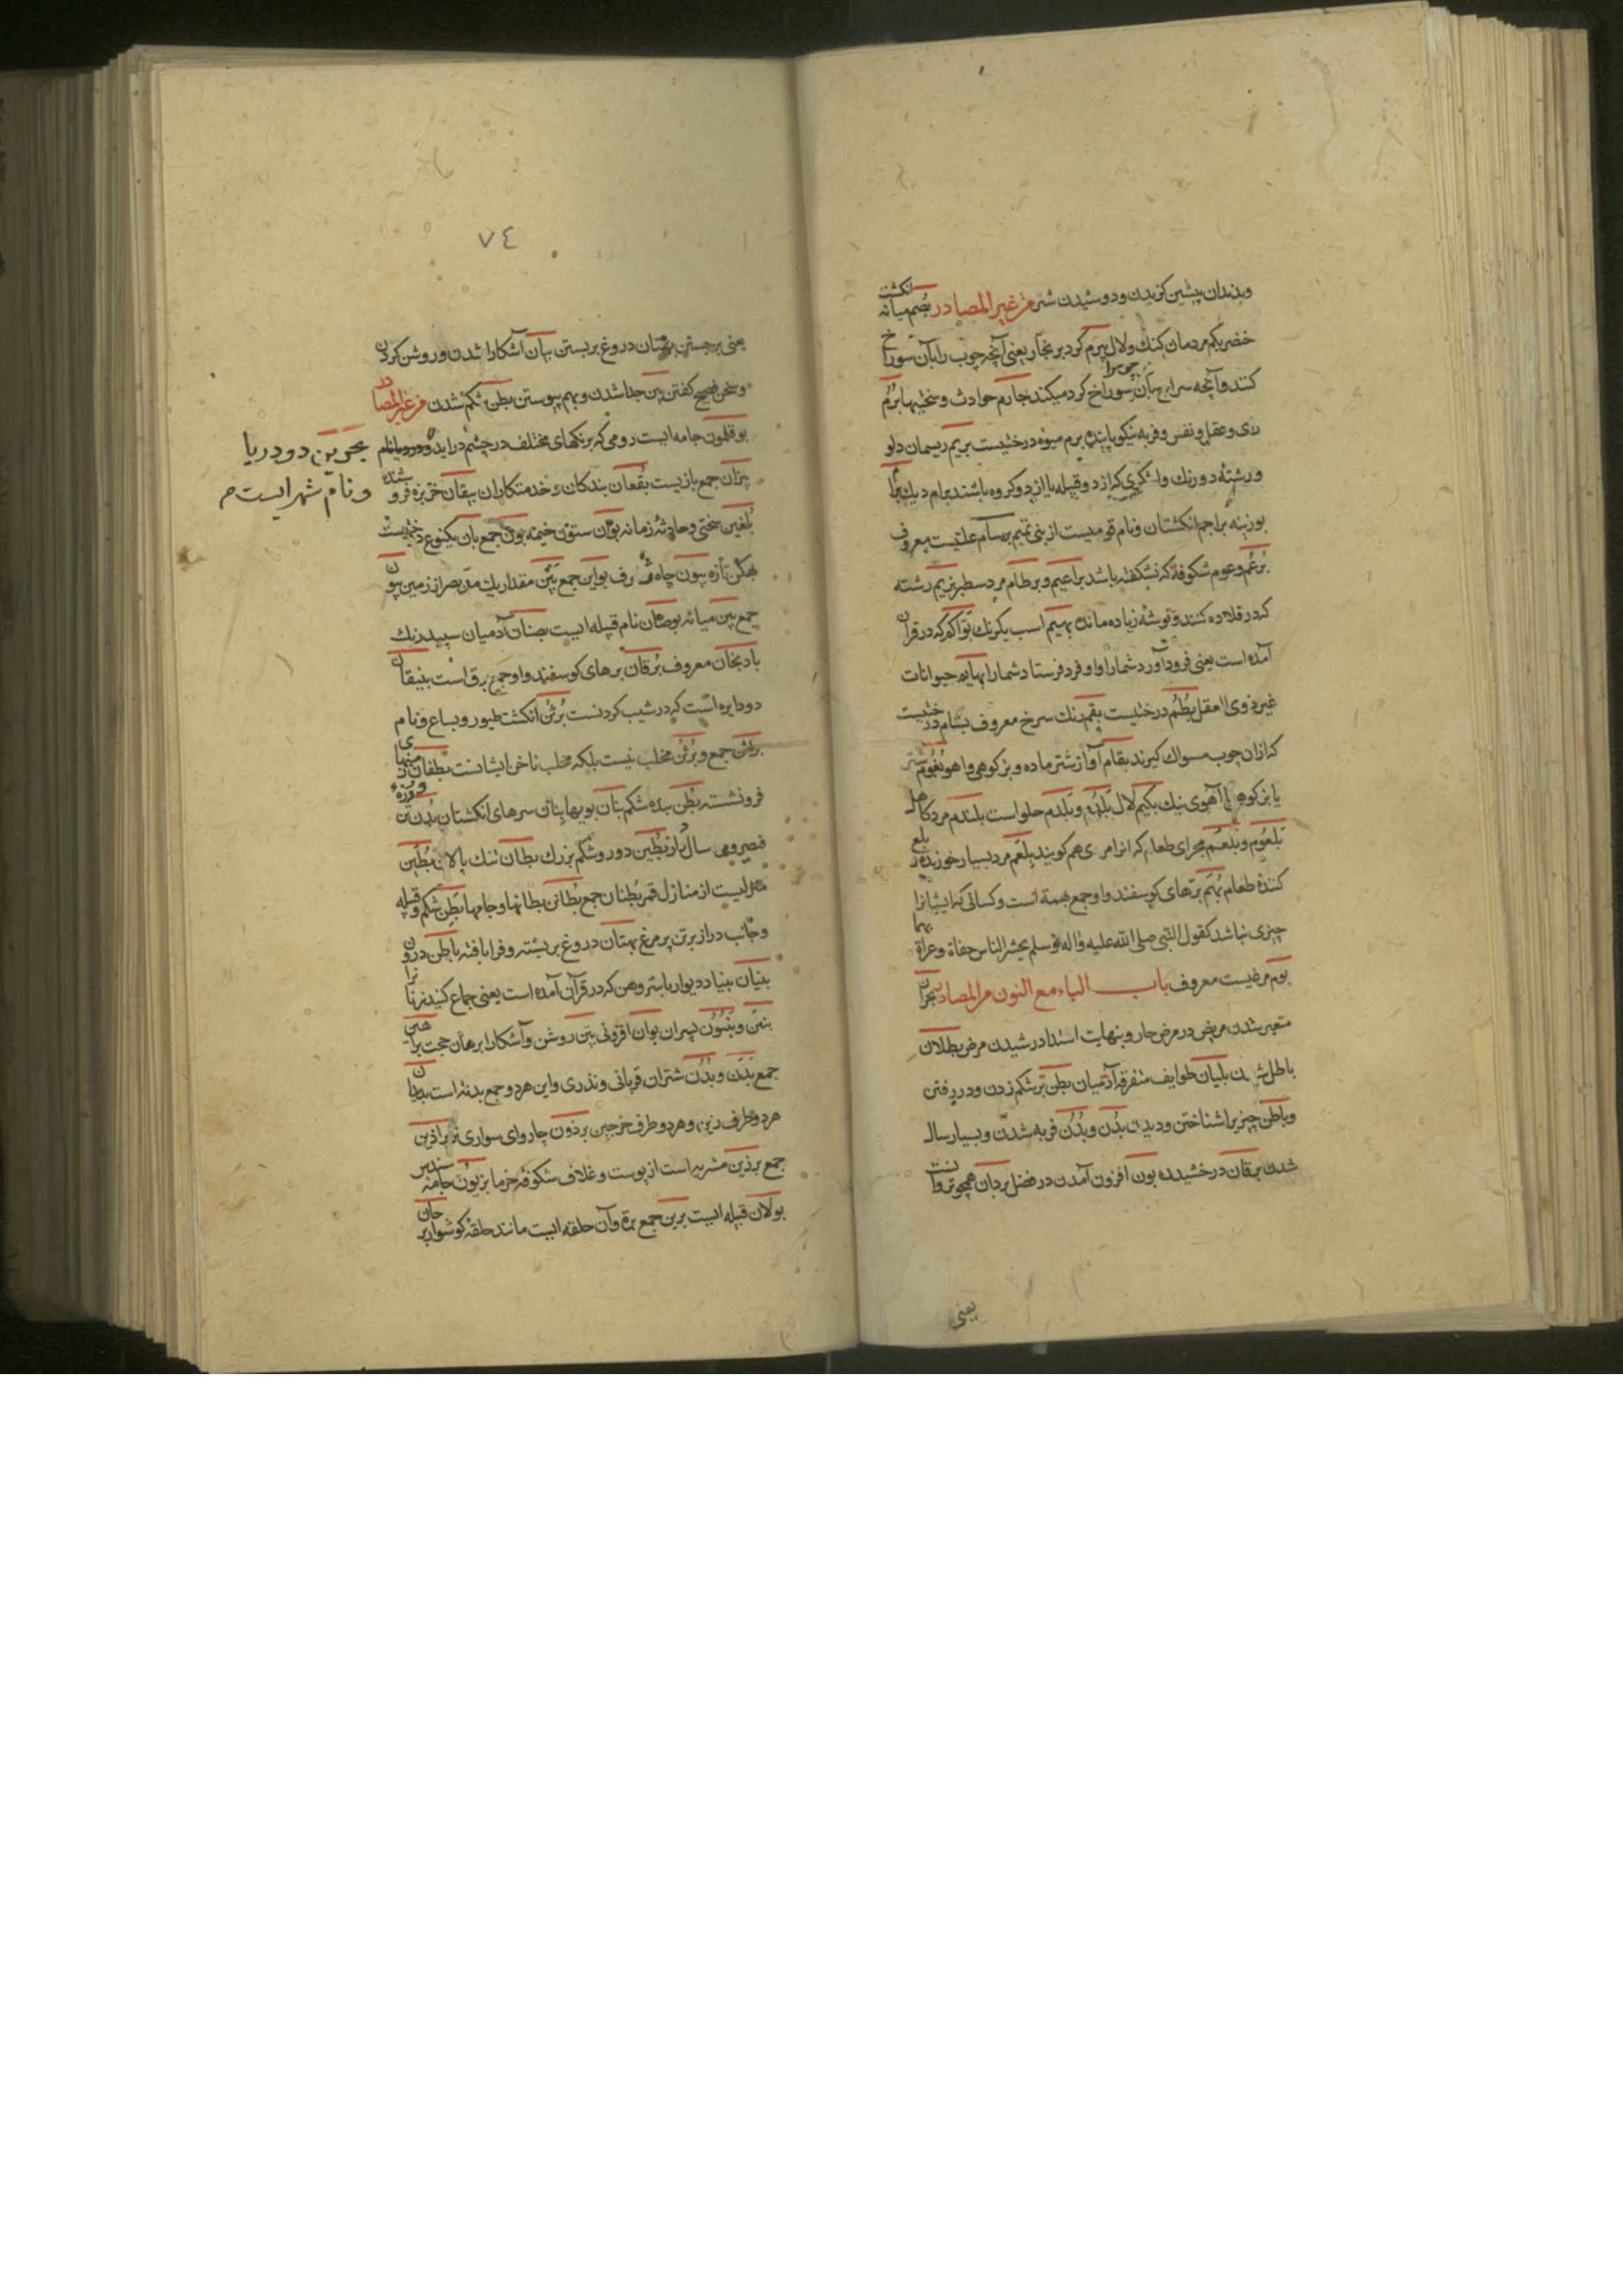 وبدندان پیشین کزیدن ودوشیدن شتر من غیر المصادر بُصم میانه انکشت
خنصر بکم مردمان کنك ولال بیرم کرد بر نجّار یعنی آنچه چوب را بآن سوراخ
کنند وآنچه سرابج بآن سوراخ کرد میکند بجارم حوادث وسختیها بُرَم
ری وعقل ونفس وفربه نیکو پاینده برم میوه درختیست بریم ریسمان دلو
ورشتهٔ دو رنك ولشکری که از دو قبیله یا از دو کروه باشند برام دیك
بوزینه براجم انکشتان ونام قومیست از بنی تمیم برسام علتیست معروف
بُرعُم وعوم شکوفهٔ که نشکفته باشد براعیم وبرطام مرد سطبر بریم رشته
که در قلاده کنند وتوشهٔ زیاده مانده بهیم اسب یکرنك بَوّاکم که در قرآن
آمده است یعنی فرود آورد شمارا واو فرد فرستاد شمارا بهایم حیوانات
غیر ذوی العقل بُطُم درختیست بقم رنك سرخ معروف بشام درختیست
که ازان چوب مسواك کیرند بقام آواز شتر ماده وبز کوهی واهو بُغُوم شتر
یا بز کوهی یا آهوی نیك بکیم لال بَلَدُم وبَلَدم حلو است بلندم مرد کاهل
بَلعُوم وبُلعُم مجرای طعام که انرا مری هم کویند بلعَم مرد بسیار خورنده بلع
کنندهٔ طعام بُهَم برّهای کوسفند واو جمع بهمة است وکسانی که ایشانرا
چیزی نباشد کقول النبی صلی الله علیه واله وسلم یحشر الناس حفاة وعراة بهما
بوم مرغیست معروف باب الباء مع النون من المصادر بحران
متغیر شدن مریض در مرض حار وبنهایت اشتداد رسیدن مرض بطلان
باطل شدن بلیان طوایف متفرقهٔ آدمیان بطن بر شکم زدن ودر رفتن
وباطن چیزیرا شناختن ودیدن بُدْن وبُدُن فربه شدن وبسیار سال
شدن برقان درخشیده بون افزون آمدن در فضل بردان همچو تروانست
یعنی
٧٤
یعنی برجستن بهتان دروغ بر بستن بیان آشکارا شدن وروشن کردن
وسخن فصیح کفتن بین جدا شدن وبهم پیوستن بطن شکم شدن من غیر المصادر
بوقلمون جامه ایست رومی که برنکهای مختلف در چشم در اید
بحرین دو دریا
ونام شهر ایست م
بیزان جمع باز یست بقعان بندکان وخدمتکاران بیقان خربزه فرو شنده
بُلغین سختی وحادثهٔ زمانه بوان ستون خیمه بون جمع بان یکنوع درختیست
بهکن تازه بیون چاه ژرف بواین جمع بین مقدار یك مدّ بصر از زمین بیون
جمع بین میانه بوصان نام قبیله ایست بضنان آدمیان سپید رنك
بادنجان معروف بُرقان برهای کوسفند واو جمع برق است بنیقان
دو دایره است که در شیب کردنست بُرثن انکشت طیور وسباع ونام
براثن جمع وبُرثن مخلب نیست بلکه مخلب ناخن ایشانست بطفان زمینهای
فرو نشسته بُطن بنده شکم بنان بویها بنان سرهای انکشتان بُدُن
قصیر وهی سال باز بُطین دور وشکم بزرك بطان تنك پالان بُطَین
منزلیست از منازل قمر بُطنان جمع بُطائن بطانها وجامها بَطن شکم وقبیله
وجانب دراز برتن پر مرغ بهتان دروغ بر بسته وفرا بافته باطن درون
بنیان بنیاد ودیوار باشروهن که در قرآن آمده است یعنی جماع کنید زنانرا
بنین وبَنُون پسران بوان افزونی بیّن روشن وآشکارا برهان حجت براهین
جمع بَدَن وبُدُن شتران قربانی ونذری واین هر دو جمع بدنه است بدادان
هر دو طرف زین وهر دو طرف خرجین برذون چاروای سواری نر براذین
جمع برذین مشربه است از پوست وغلاف شکوفهٔ خرما بزیون جامهٔ سندس
بولان قبیله ایست برین جمع برة وآن حلقه ایست مانند حلقهٔ کوشوار